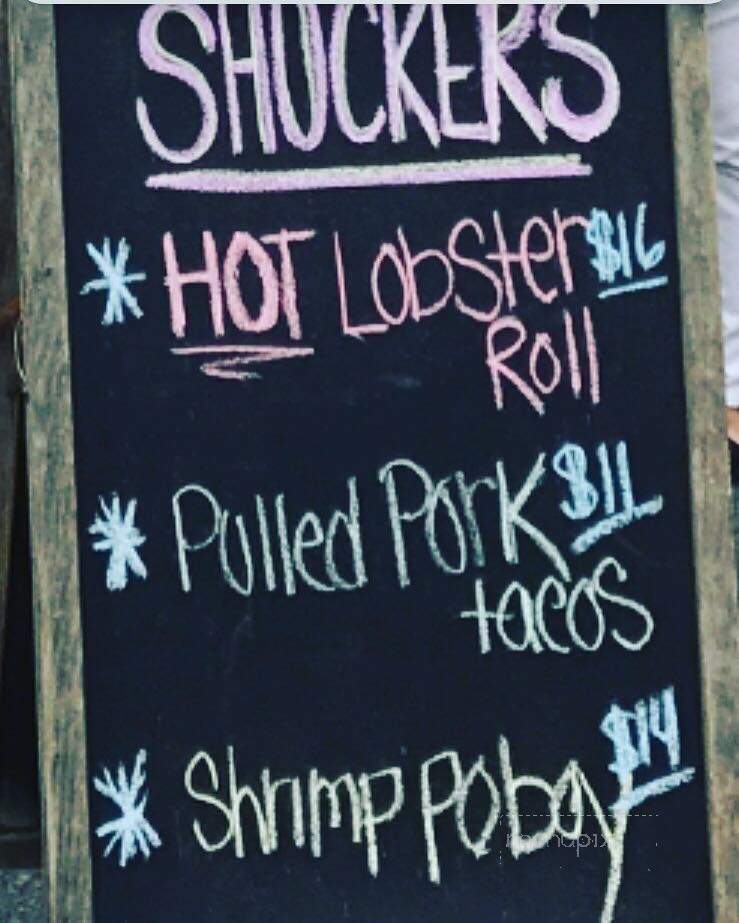 SHUCKERS
* HOT Lobster $16
Roll
* Pulled Pork $11
tacos
* Shrimp Poboy $14
menupix